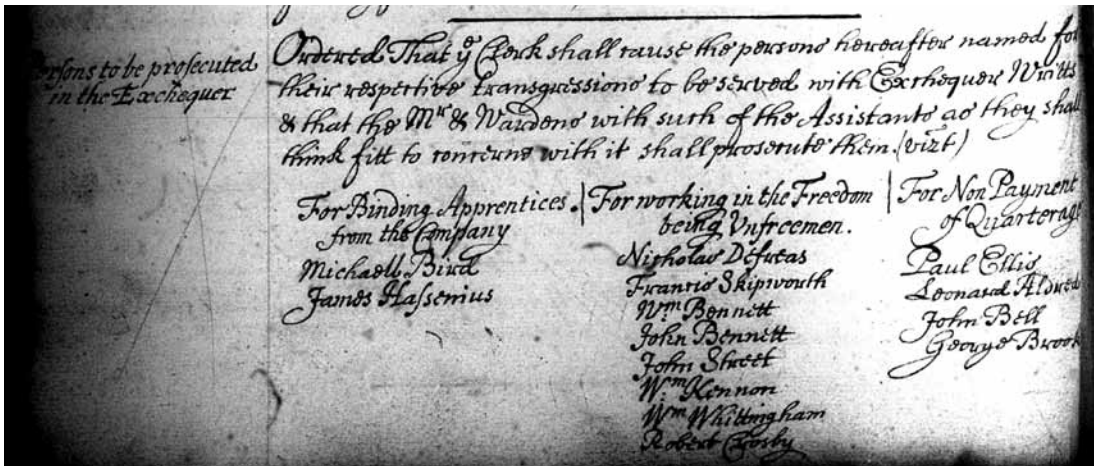 Persons to be prosecuted
in the Exchequer
Ordered That ye Clerk shall cause the persons hereafter named for
their respective transgressions to be served with Exchequer Writts
& that the Mr & Wardens with such of the Assistants as they shall
think fitt to concerne with it shall prosecute them. (vizt)
For Binding Apprentices
from the Company
Michaell Bird
James Hassenius
For working in the Freedom
being Unfreemen.
Nicholas Defreas
Francis Skipworth
Wm Bennett
John Bennett
John Street
Wm Kennon
Wm Whittingham
Robert Crosby
For Non Payment
of Quarterage
Paul Ellis
Leonard Aldred
John Bell
George Brook